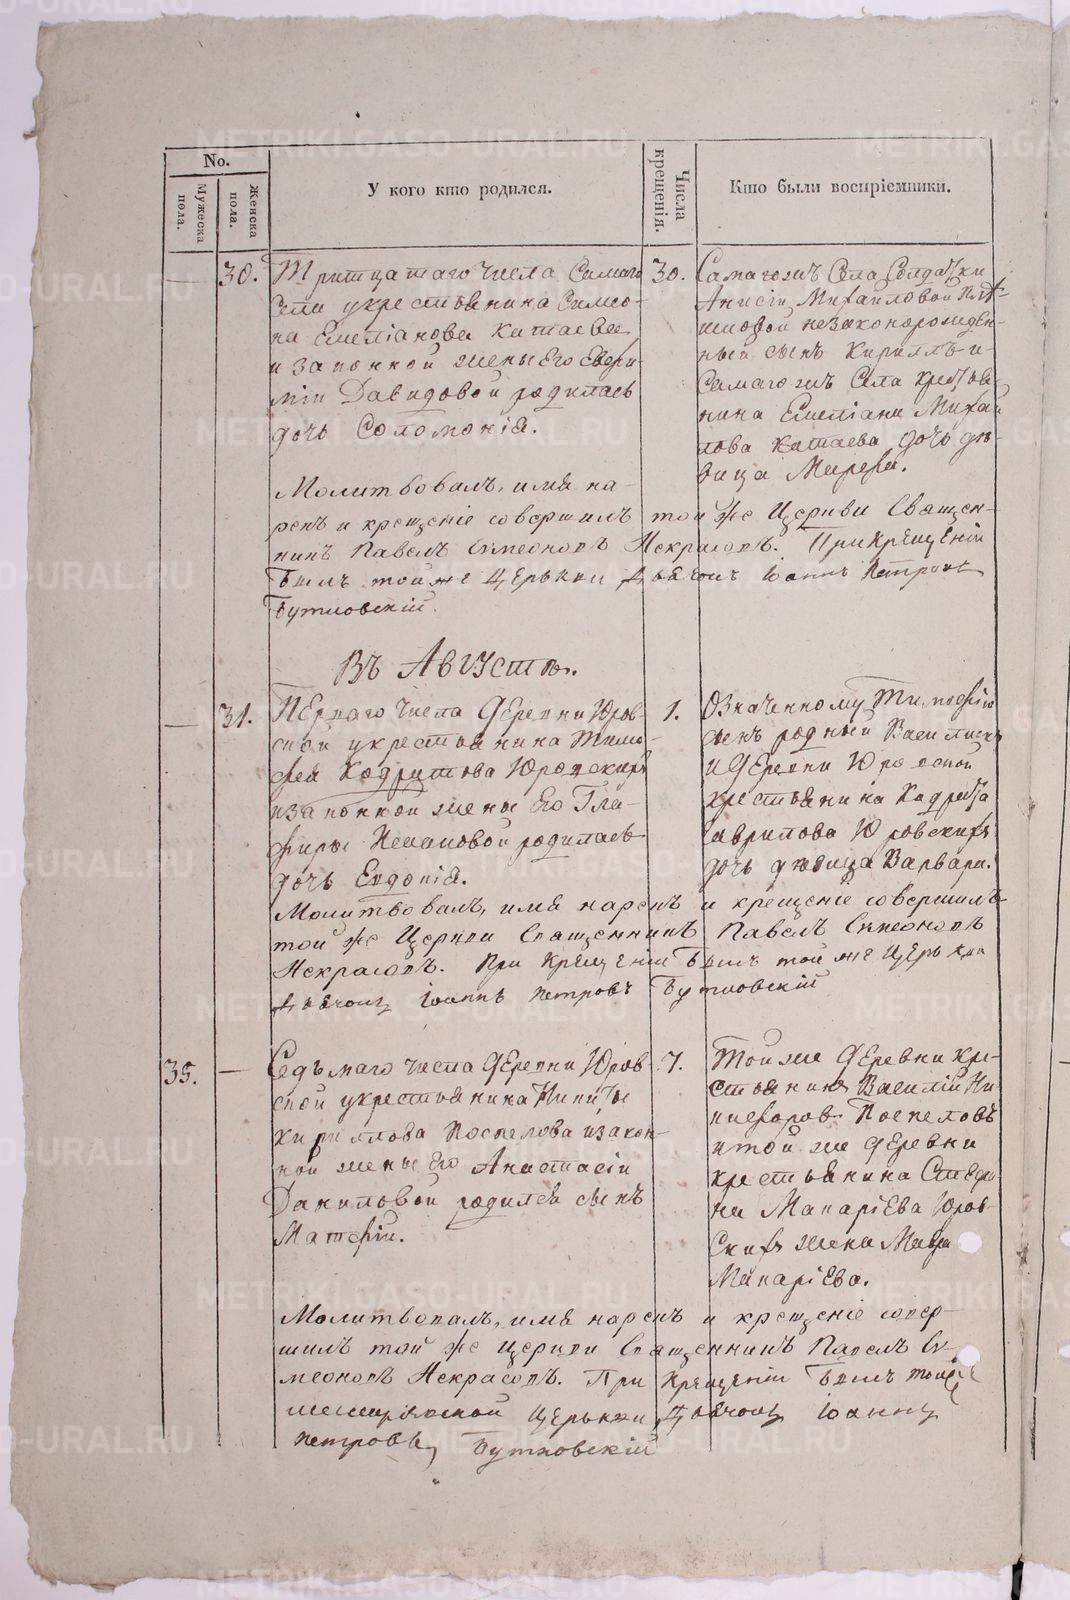 No.
Мужеска пола.
Женска пола.
У кого кто родился.
Числа крещенія.
Кто были воспріемники.
30.
Тритцатаго числа Самаго
Села укрестьянина Симео-
на Емеліанова Катаева
изаконной жены Его Евфи-
міи Давидовой родилась
дочь Соломонія.
30.
Самагожъ Села Солдатки
Анисіи Михаиловой
незаконорожден-
ный сынъ Кириллъ и
Самагожъ Села Крестья-
нина Емеліана Михаи
лова Катаева дочь дѣ-
вица Марфа.
Молитвовалъ, имя на-
рекъ и крещеніе совершилъ той же Церкви Священ-
никъ Павелъ Симеоновъ Некрасовъ. При Крещеніи
былъ тойже Церькви Дьячокъ Іоаннъ Петровъ
Бутковскій.
Въ Августѣ.
31.
Перваго Числа Деревни Юров-
ской укрестьянина Тимо-
фея Кодратова Юровскихъ
изаконной жены Его Гла-
фиры родилась
дочь Евдокія.
1.
Означенному Тимофею
сынъ родный
и Деревни Юровской
крестьянина Кодрата
Гаврилова Юровскихъ
дочь дѣвица Варвара.
Молитвовалъ, имя нарекъ и крещеніе совершилъ
той же Церкви Священникъ Павелъ Симеоновъ
Некрасовъ. При Крещеніи былъ той же Церькви
Дьячокъ Іоаннъ Петровъ Бутковскій
35.
Седьмаго числа Деревни Юров-
ской укрестьянина Никиты
Кирилова Поспелова изакон-
ной жены Его Анастасіи
Даниловой родился сынъ
Матфій.
7.
Той же Деревни Кре-
стьянинъ Василій Ни-
кифоровъ Поспеловъ
итой же деревни
крестьянина Стефа
на Макаріева Юров-
скихъ жена Мавра
Макаріева.
Молитвовалъ, имя нарекъ и крещеніе совер-
шилъ той же Церкви Священникъ Павелъ Си-
меоновъ Некрасовъ. При Крещеніи былъ тойже
Церькви Дьячокъ Іоаннъ
Петровъ Бутковскій
METRIKI.GASO-URAL.RU